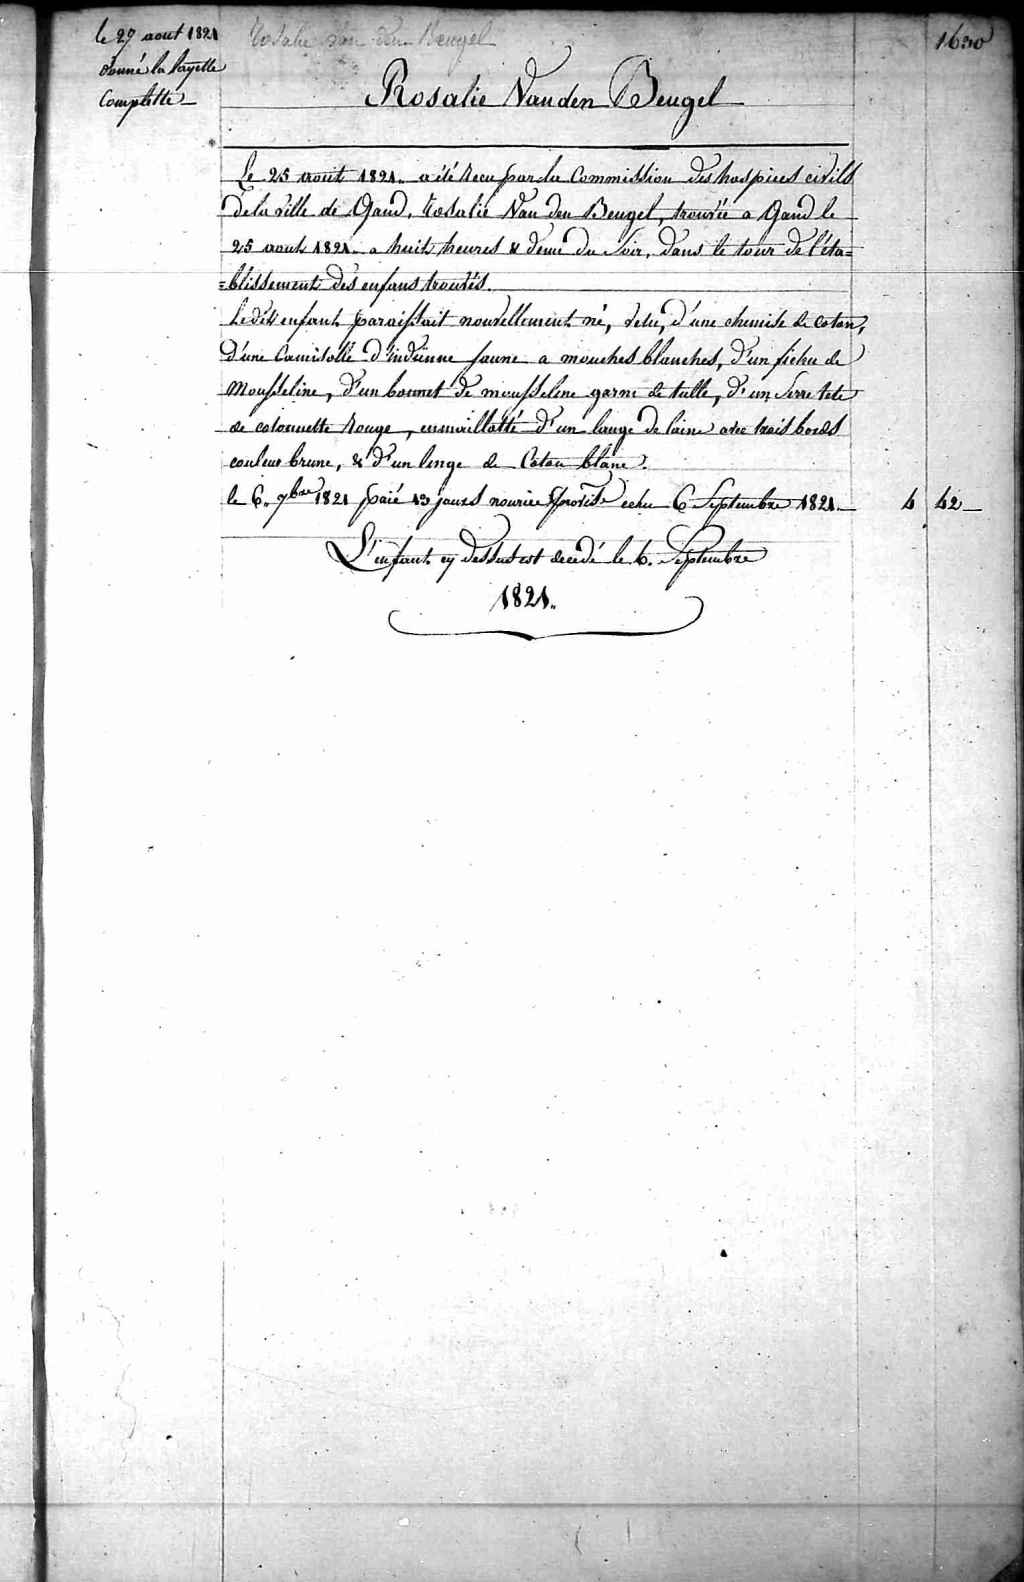 le 27 aout 1821
donné la layette
Complette
Rosalie Van den Beugel
1630
Rosalie Van den Beugel
Le 25 aout 1821. a été recu par la Commission des hospices civils
de la ville de Gand, Rosalie Van den Beugel, trouvée a Gand le
25 aout 1821. a huit heures & demie du soir, dans le tour de l'éta=
=blissement des enfans trouvés.
Ledit enfant paraissait nouvellement né, vetu, d'une chemise de coton,
d'une Camisolle d'indienne jaune a mouches blanches, d'un fichu de
Mousseline, d'un bonnet de mousseline garni de tulle, d'un Serre tete
de cotonnette rouge, emmaillotté d'un lange de laine avec trois bords
couleur brune, & d'un linge de Coton blanc.
le 6. 7bre 1821 paié 13 jours nourice echu 6 Septembre 1821. 4 42
L'enfant cy dessus est decedé le 6. Septembre
1821.